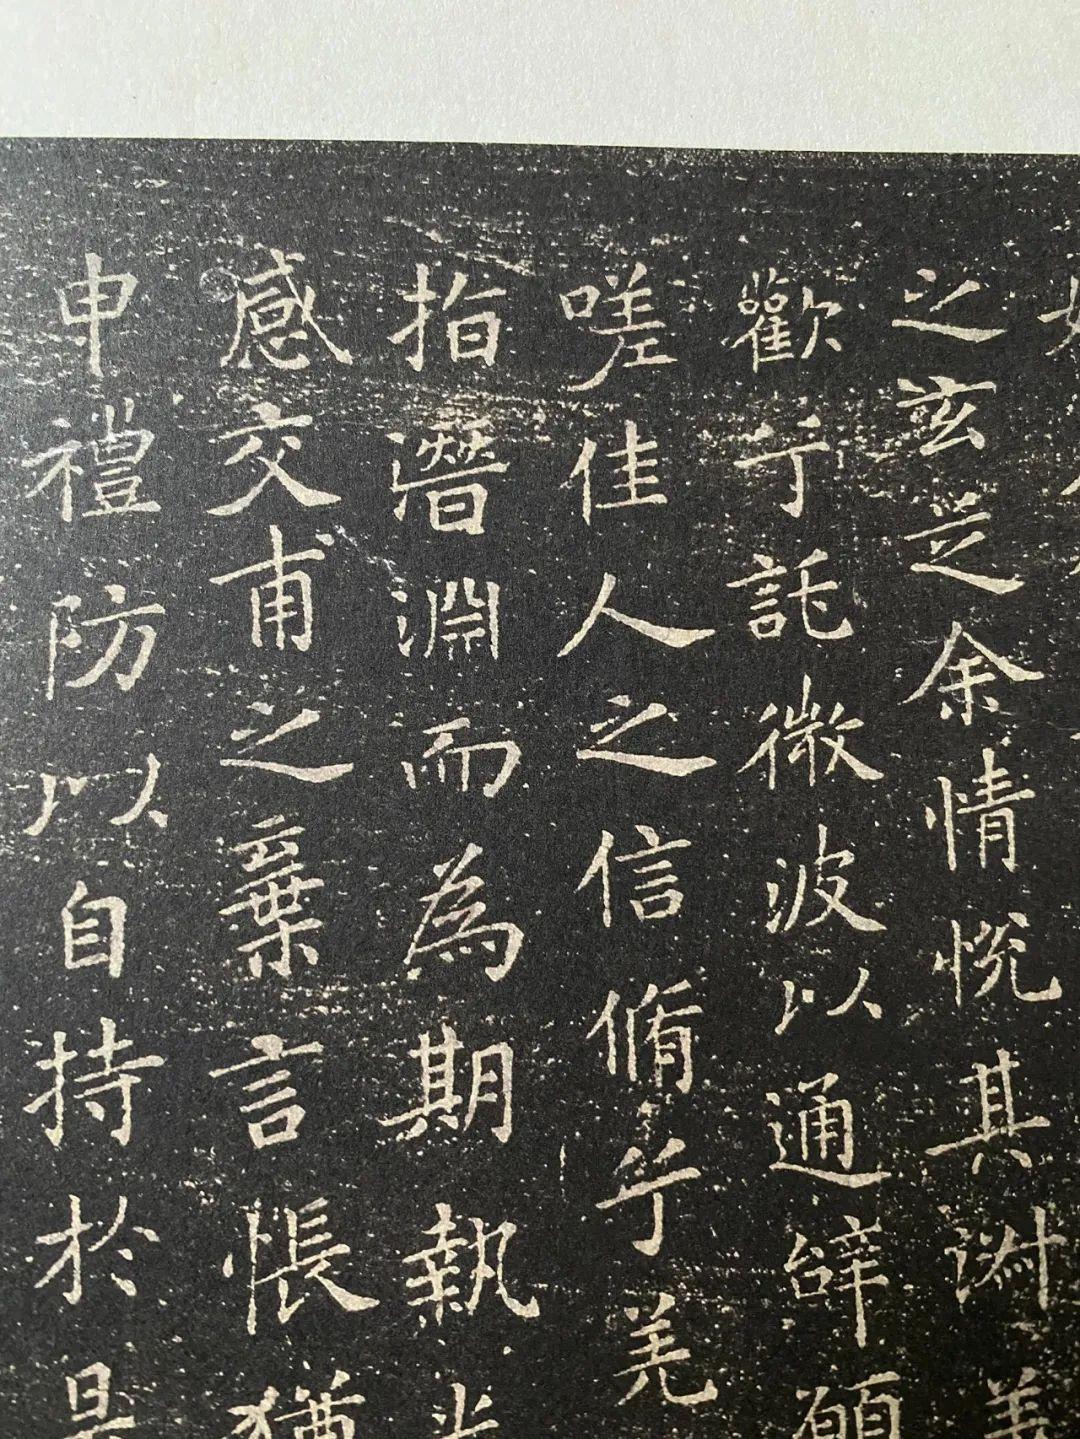 之玄芝余情悅其淑美
歡兮託微波以通辝願
嗟佳人之信脩乎羌
指潛淵而為期執
感交甫之棄言悵猶
申禮防以自持於是